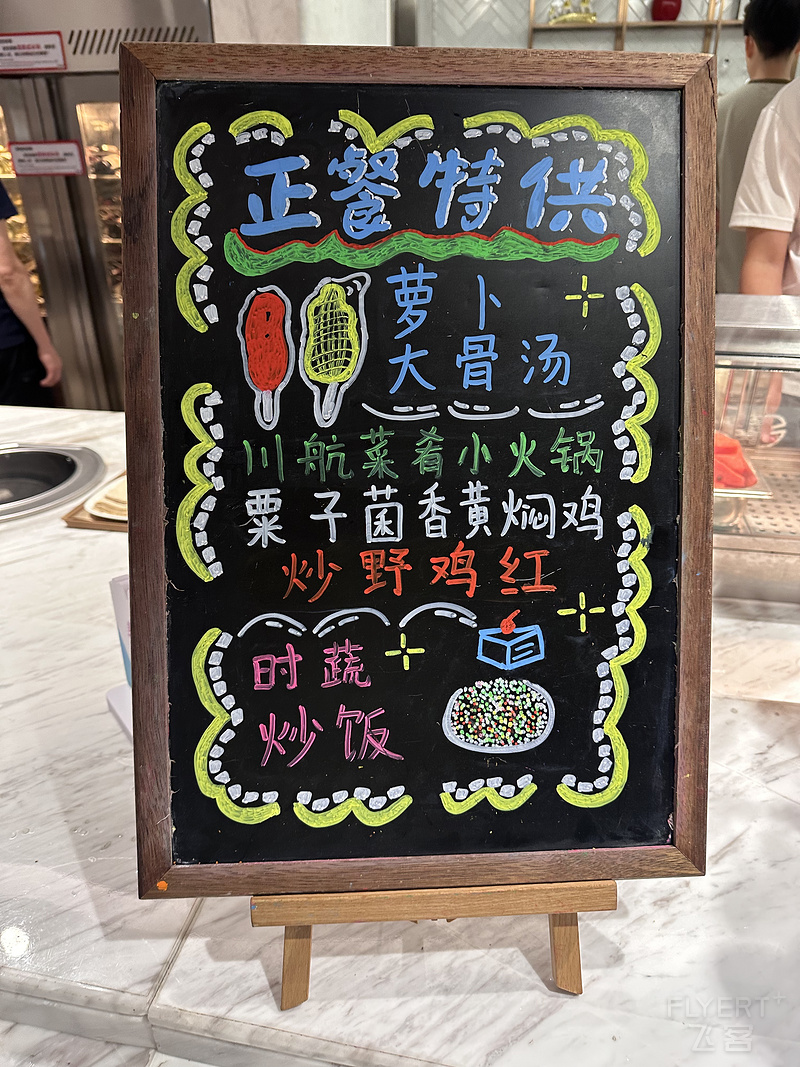 正餐特供
萝卜
大骨汤
川航菜肴小火锅
粟子菌香黄焖鸡
炒野鸡红
时蔬
炒饭
FLYERT+
飞客